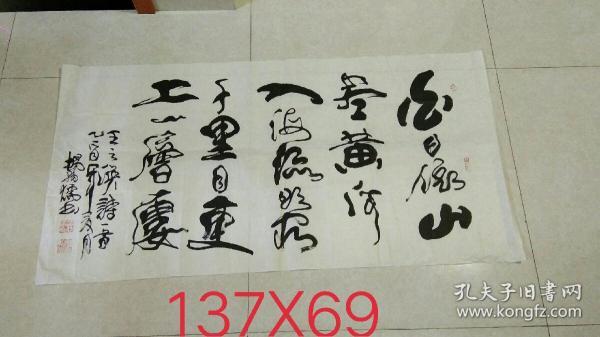 白日依山
盡黄河
入海流欲窮
千里目更
上一層樓
王之渙詩一首
137X69
孔夫子旧书网
www.kongfz.com